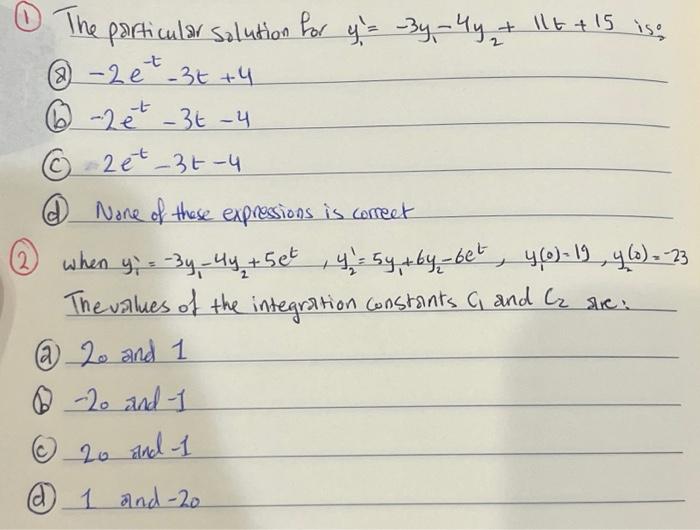 ① The particular solution for y₁' = -3y₁ - 4y₂ + 11t + 15 is:
ⓐ -2e^-t - 3t + 4
ⓑ -2e^-t - 3t - 4
ⓒ 2e^-t - 3t - 4
ⓓ None of these expressions is correct
② when y₁' = -3y₁ - 4y₂ + 5e^t , y₂' = 5y₁ + 6y₂ - 6e^t , y₁(0) = 19 , y₂(0) = -23
The values of the integration constants C₁ and C₂ are:
ⓐ 20 and 1
ⓑ -20 and -1
ⓒ 20 and -1
ⓓ 1 and -20